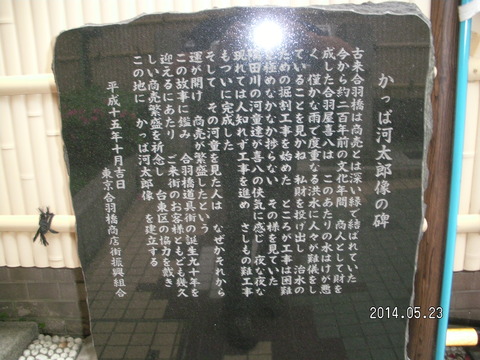 かっぱ河太郎像の碑
古来合羽橋は商売とは深い縁で結ばれていた
今から約二百年前の文化年間 商人として財を
成した合羽屋喜八は このあたりの水はけが悪
く 僅かな雨で度重なる洪水に人々が難儀をし
ていることを見かね 私財を投げ出し 治水の
ための掘割工事を始めた ところが工事は困難
を極めなかなか捗らない その様を見ていた
隅田川の河童達が喜八の侠気に感じ 夜な夜な
現れては人知れず工事を進め さしもの難工事
もついに完成した
そして その河童を見た人は なぜかそれから
運が開け 商売が繁盛したという
この故事に鑑み 合羽橋道具街の誕生九十年を
迎えるにあたり ご来街のお客様ともども幾久
しい商売繁盛を祈念し 台東区の協力を戴き
この地に かっぱ河太郎像 を建立する
平成十五年十月吉日
東京合羽橋商店街振興組合
2014.05.23